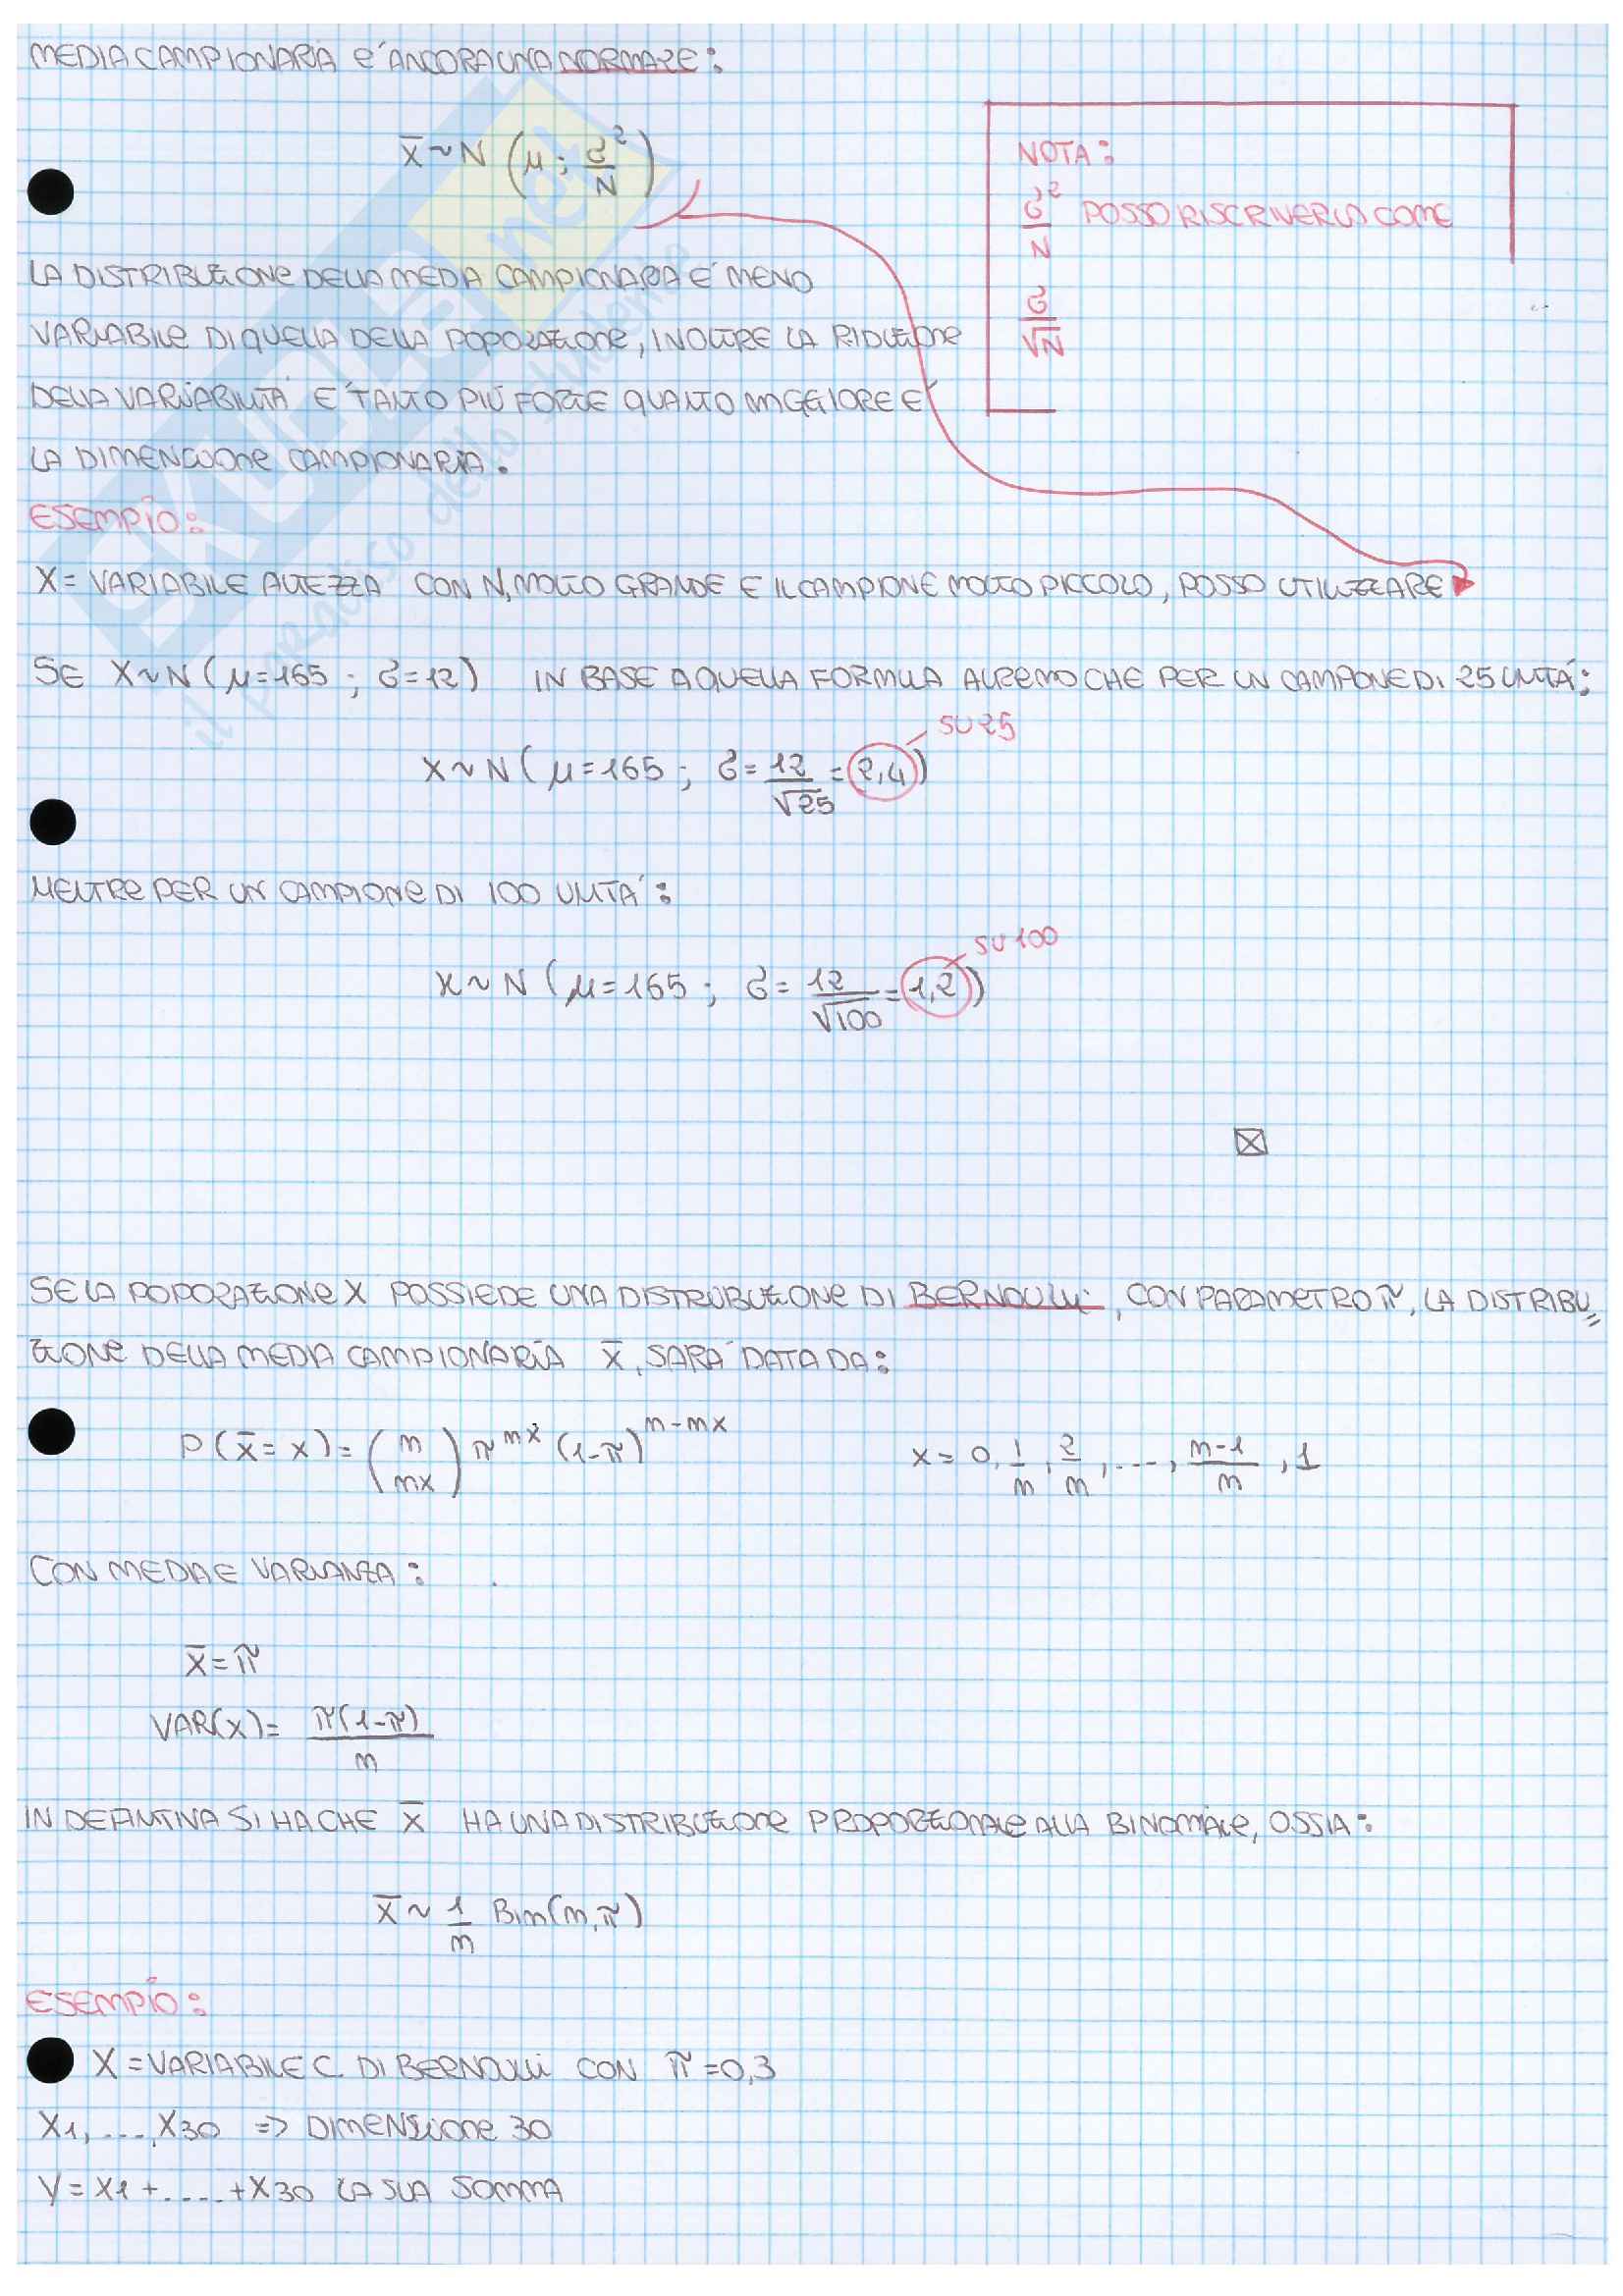 MEDIA CAMPIONARIA E' ANCORA UNA NORMALE:
X̄ ~ N (μ ; σ²/N)
NOTA:
σ²/N POSSO RISCRIVERLO COME
σ/√N
LA DISTRIBUZIONE DELLA MEDIA CAMPIONARIA E' MENO
VARIABILE DI QUELLA DELLA POPOLAZIONE, INOLTRE LA RIDUZIONE
DELLA VARIABILITA' E' TANTO PIÙ FORTE QUANTO MAGGIORE E'
LA DIMENSIONE CAMPIONARIA.
ESEMPIO:
X = VARIABILE ALTEZZA CON N, MOLTO GRANDE E IL CAMPIONE MOLTO PICCOLO, POSSO UTILIZZARE
SE X ~ N (μ=165 ; σ=12) IN BASE A QUELLA FORMULA AVREMO CHE PER UN CAMPIONE DI 25 UNITA':
SU 25
X ~ N ( μ=165 ; σ = 12/√25 = 2,4)
MENTRE PER UN CAMPIONE DI 100 UNITA':
SU 100
X ~ N (μ=165 ; σ = 12/√100 = 1,2)
X
SE LA POPOLAZIONE X POSSIEDE UNA DISTRIBUZIONE DI BERNOULLI, CON PARAMETRO π, LA DISTRIBU=
ZIONE DELLA MEDIA CAMPIONARIA X̄, SARA' DATA DA:
P(X̄ = x) = (n nx) π^nx (1-π)^n-nx x = 0, 1/n, 2/n, ...., n-1/n, 1
CON MEDIA E VARIANZA:
X̄ = π
VAR(X) = π(1-π)/n
IN DEFINITIVA SI HA CHE X̄ HA UNA DISTRIBUZIONE PROPORZIONALE ALLA BINOMIALE, OSSIA:
X̄ ~ 1/n Bin(n,π)
ESEMPIO:
X = VARIABILE C. DI BERNOULLI CON π = 0,3
X1, ...., X30 => DIMENSIONE 30
Y = X1 + ..... + X30 LA SUA SOMMA
SKUOLA.net
il paradiso dello studente